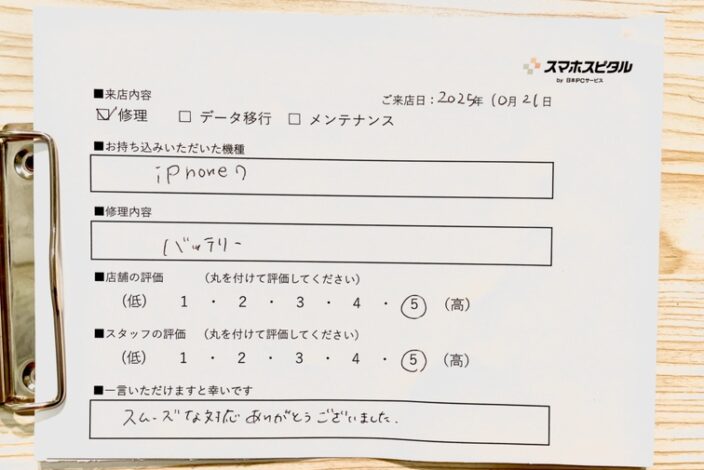 スマホスピタル
by 日本PCサービス
■来店内容
ご来店日：2025年 10月 21日
☑修理 □ データ移行 □ メンテナンス
■お持ち込みいただいた機種
iPhone7
■修理内容
バッテリー
■店舗の評価 （丸を付けて評価してください）
（低） 1 ・ 2 ・ 3 ・ 4 ・ ⑤ （高）
■スタッフの評価 （丸を付けて評価してください）
（低） 1 ・ 2 ・ 3 ・ 4 ・ ⑤ （高）
■一言いただけますと幸いです
スムーズな対応ありがとうございました.